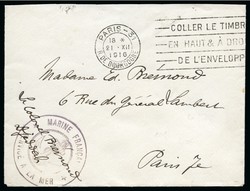 PARIS-31
18 *
21-XII
1918
COLLER LE TIMBRE
EN HAUT & A DRO
DE L'ENVELOPP
Madame Ed. Bremond
6 Rue du Général Lambert
Paris 7e
MARINE FRANÇ
A LA MER
Le Colonel Bremond